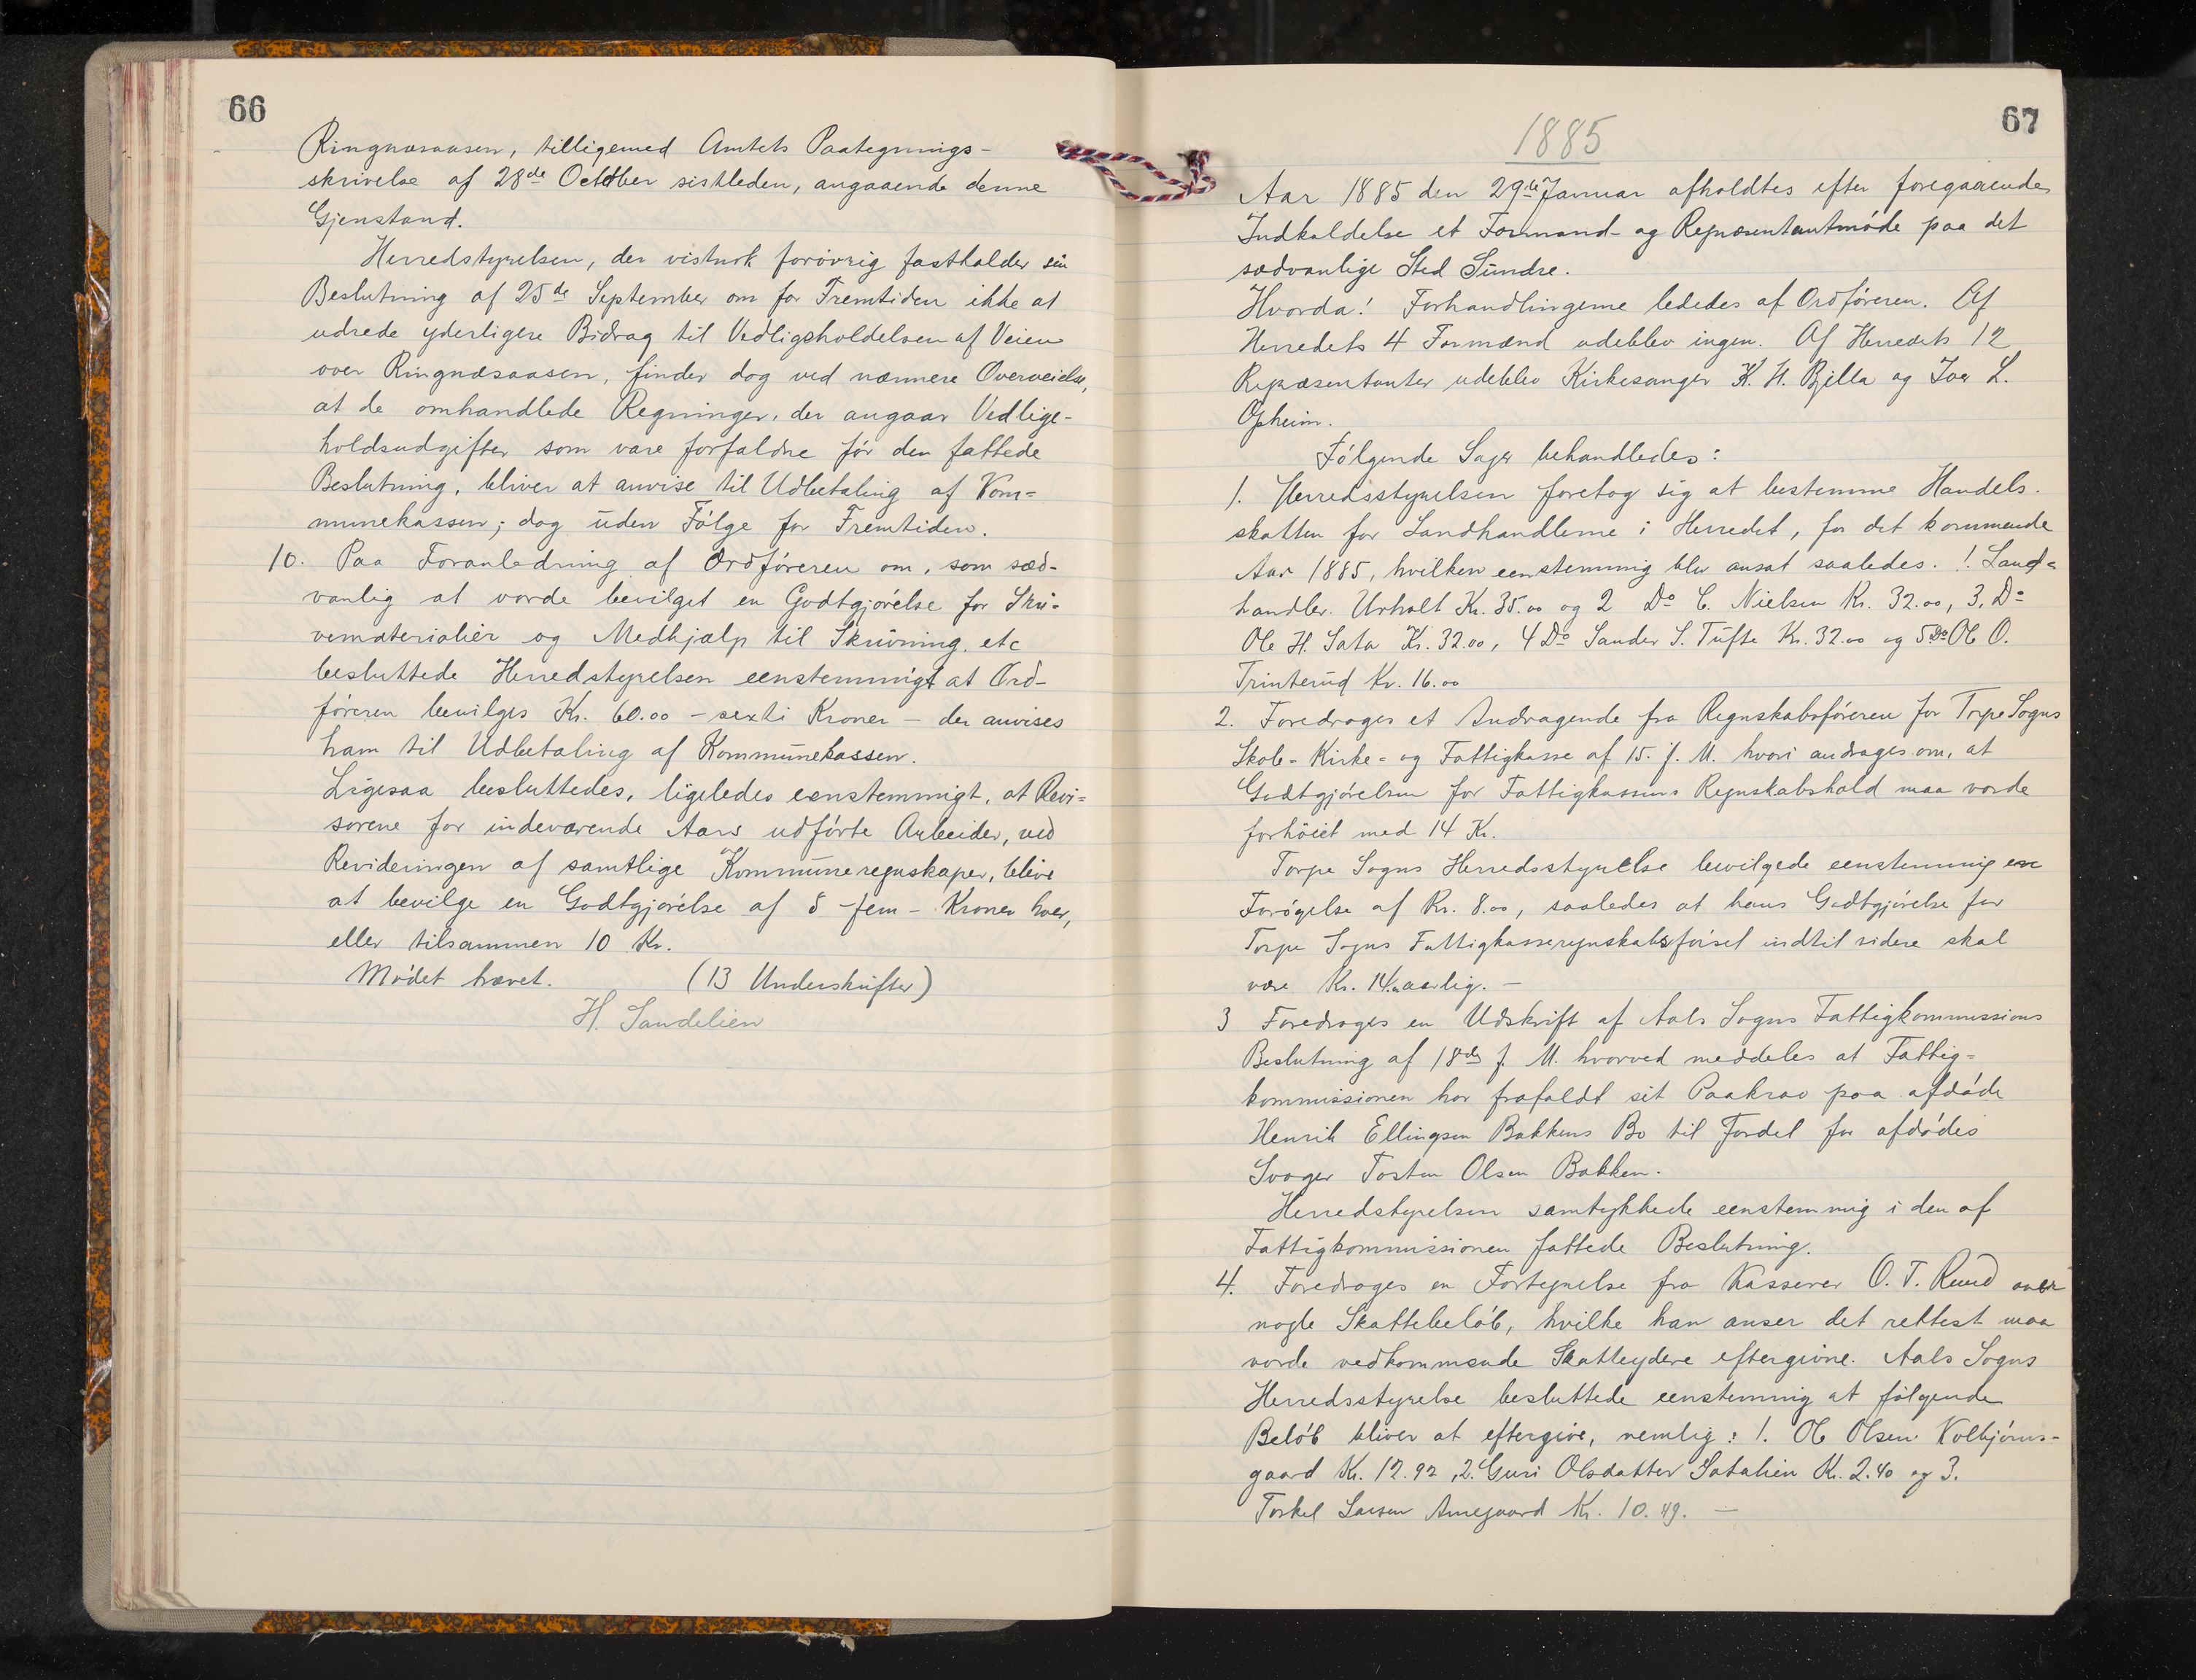 66
Ringnæsaasen, tilligemed Amtets Paategnings-
skrivelse af 28de October sistleden, angaaende denne
Gjenstand.
Herredstyrelsen, der vistnok forøvrig fastholder sin
Beslutning af 25de September om for Fremtiden ikke at
udrede yderligere Bidrag til Vedligeholdelsen af Veien
over Ringnæsaasen, finder dog ved nærmere Overveielse,
at de omhandlede Regninger, der angaar Vedlige-
holdsudgifter som vare forfaldne før den fattede
Beslutning, bliver at anvise til Udbetaling af Kom-
munekassen; dog uden Følge for Fremtiden.
10. Paa Foranledning af Ordføreren om, som sæd-
vanlig at vorde bevilget en Godtgjørelse for Skri-
vematerialier og Medhjælp til Skrivning etc
besluttede Herredstyrelsen eenstemmigt at Ord-
føreren bevilges Kr. 60.00 - sexti Kroner - der anvises
ham til Udbetaling af Kommunekassen.
Ligesaa besluttedes, ligeledes eenstemmigt, at Revi-
sorene for indeværende Aars udførte Arbeider, ved
Revideringen af samtlige Kommuneregnskaper, blive
at bevilge en Godtgjørelse af 5 - fem - Kroner hver,
eller tilsammen 10 Kr.
Mødet hævet. (13 Underskrifter)
H. Sandelien
67
1885
Aar 1885 den 29de Januar afholdtes efter foregaaende
Indkaldelse et Formand- og Repræsentantmøde paa det
sædvanlige Sted Sundre.
Hvorda! Forhandlingerne lededes af Ordføreren. Af
Herredets 4 Formænd udeblev ingen. Af Herredets 12
Repæsentanter udeblev Kirkesanger K. H. Bjella og Iver L.
Opheim.
Følgende Sager behandledes:
1. Herredsstyrelsen foretog sig at bestemme Handels-
skatten for Landhandlerne i Herredet, for det kommende
Aar 1885, hvilken eenstemmig blev ansat saaledes. 1. Land-
handler. Urholt Kr. 35.00 og 2 Do C. Nielsen Kr. 32.00, 3. Do
Ole H. Sata Kr. 32.00, 4 Do Sander S. Tufte Kr. 32.00 og 5 Do Ole O.
Trinterud Kr. 16.00
2. Foredroges et Andragende fra Regnskabsføreren for Torpe Sogns
Skole- Kirke- og Fattigkasse af 15. f. M. hvori andrages om, at
Godtgjørelsen for Fattigkassens Regnskabshold maa vorde
forhøiet med 14 Kr.
Torpe Sogns Herredsstyrelse bevilgede eenstemmig en
Forøgelse af Kr. 8.00, saaledes at hans Godtgjørelse for
Torpe Sogns Fattigkasseregnskabsførsel indtil videre skal
være Kr. 14.00 aarlig. -
3 Foredroges en Udskrift af Aals Sogns Fattigkommissions
Beslutning af 18de f. M. hvorved meddeles at Fattig-
kommissionen har frafaldt sit Paakrav paa afdøde
Henrik Ellingsen Bakkens Bo til Fordel for afdødes
Svoger Tosten Olsen Bakken.
Herredstyrelsen samtykkede eenstemmig i den af
Fattigkommissionen fattede Beslutning.
4. Foredroges en Fortegnelse fra Kasserer O. T. Ruud over
nogle Skattebeløb, hvilke han anser det rettest maa
vorde vedkommende Skatteydere eftergivne. Aals Sogns
Herredsstyrelse besluttede eenstemmig at følgende
Beløb bliver at eftergive, nemlig: 1. Ole Olsen Kolbjørns-
gaard Kr. 12.92, 2. Guri Olsdatter Satalien Kr. 2.40 og 3.
Torkel Larsen Arnegaard Kr. 10.49. -